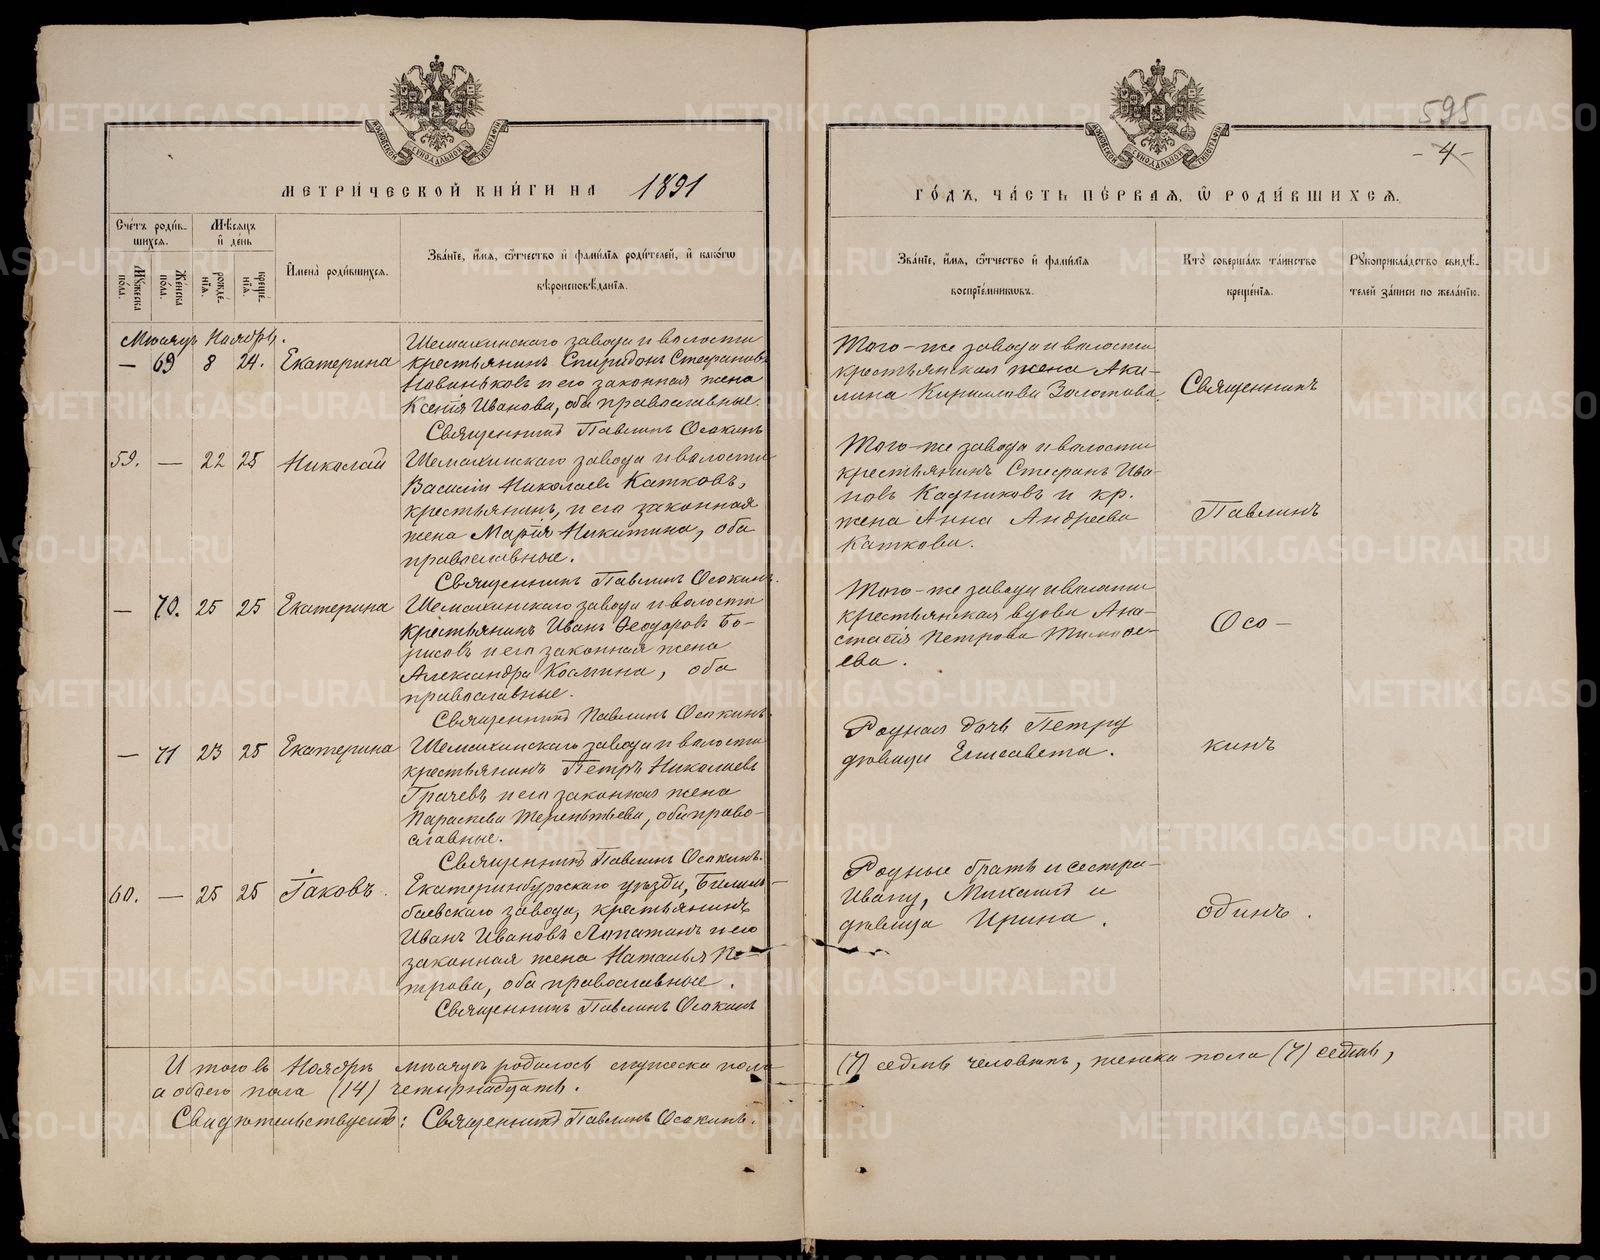 595
- 4 -
МЕТРИЧЕСКОЙ КНИГИ НА 1891
ГОДЪ, ЧАСТЬ ПЕРВАЯ, Ѡ РОДИВШИХСЯ.
Счетъ родившихся.
Мужеска пола.
Женска пола.
Мѣсяцъ и день
рожденія.
крещенія.
Имена родившихся.
Званіе, имя, отчество и фамилія родителей, и какого
вѣроисповѣданія.
Званіе, имя, отчество и фамилія
воспріемниковъ.
Кто совершалъ таинство
крещенія.
Рукоприкладство свидѣ-
телей записи по желанію.
Мѣсяцъ Ноябрь.
— 69 8 24. Екатерина
Шемахинскаго завода и волости
крестьянинъ Спиридонъ Стефановъ
и его законная жена
Ксенія Иванова, оба православные.
Священникъ Павлинъ Осокинъ
Того-же завода и волости
крестьянская жена Аки-
лина Кирилова Золотова.
Священникъ
59. — 22 25 Николай
Шемахинскаго завода и волости
Василій Николаевъ Катковъ,
крестьянинъ, и его законная
жена Марія Никитина, оба
православные.
Священникъ Павлинъ Осокинъ.
Того-же завода и волости
крестьянинъ Стефанъ Ива-
новъ Кадниковъ и кр.
жена Анна Андреева
Каткова.
Павлинъ
— 70. 25 25 Екатерина
Шемахинскаго завода и волости
крестьянинъ Иванъ Ѳеодоровъ Бо-
рисовъ и его законная жена
Александра Космина, оба
православные.
Священникъ Павлинъ Осокинъ.
Того-же завода и волости
крестьянская вдова Ана-
стасія Петрова Тимоѳе-
ева.
Осо-
— 71 23 25 Екатерина
Шемахинскаго завода и волости
крестьянинъ Петръ Николаевъ
Грачевъ и его законная жена
Параскева Терентьева, оба право-
славные.
Священникъ Павлинъ Осокинъ.
Родная дочь Петру
дѣвица Елисавета.
кинъ
60. — 25 25 Іаковъ.
Екатеринбургскаго уѣзда, Билим-
баевскаго завода, крестьянинъ
Иванъ Ивановъ Лопатинъ и его
законная жена Наталья Пе-
трова, оба православные.
Священникъ Павлинъ Осокинъ
Родные братъ и сестра
Ивану, Михаилъ и
дѣвица Ирина.
одинъ.
Итого въ Ноябрѣ мѣсяцѣ родилось мужеска пола
(7) седмь человѣкъ, женска пола (7) седмь,
а обоего пола (14) четырнадцать.
Свидѣтельствуетъ: Священникъ Павлинъ Осокинъ.
METRIKI.GASO-URAL.RU